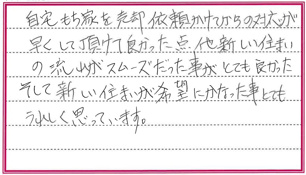 自宅もち家を売却依頼かけてからの対応が
早くして頂けて良かった点、他新しい住まい
の流れがスムーズだった事がとても良かった
そして新しい住まいが希望にかなった事とても
うれしく思っています。